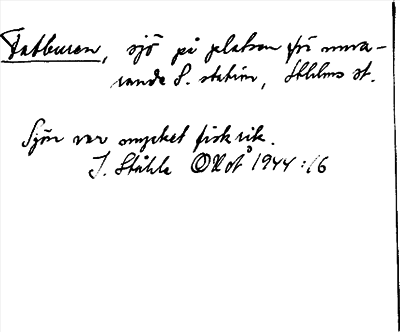 Fatburen, sjö på platsen för nuva-
rande S. station, Sthlms st.
Sjön var mycket fiskrik.
I. Ståhle 1944:16